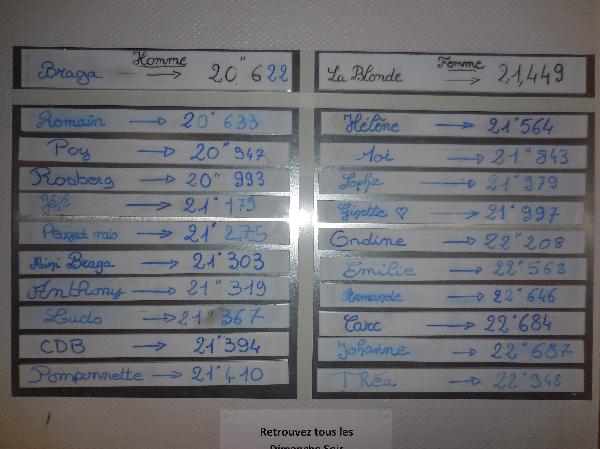 Homme
Braga → 20"622
Romain → 20"633
Poy → 20"947
Rosberg → 20"993
Jéjé → 21"179
Peugeot malo → 21"275
Mini Braga → 21"303
Anthony → 21"319
Ludo → 21"367
CDB → 21"394
Pomponnette → 21"410
Femme
La Blonde → 21,449
Hélène → 21"564
Moi → 21"843
Sophie → 21"979
Ginette ♡ → 21"997
Ondine → 22"208
Emilie → 22"568
Armande → 22"646
Carc → 22"684
Johanne → 22"687
Théa → 22"948
Retrouvez tous les
Dimanche Soir